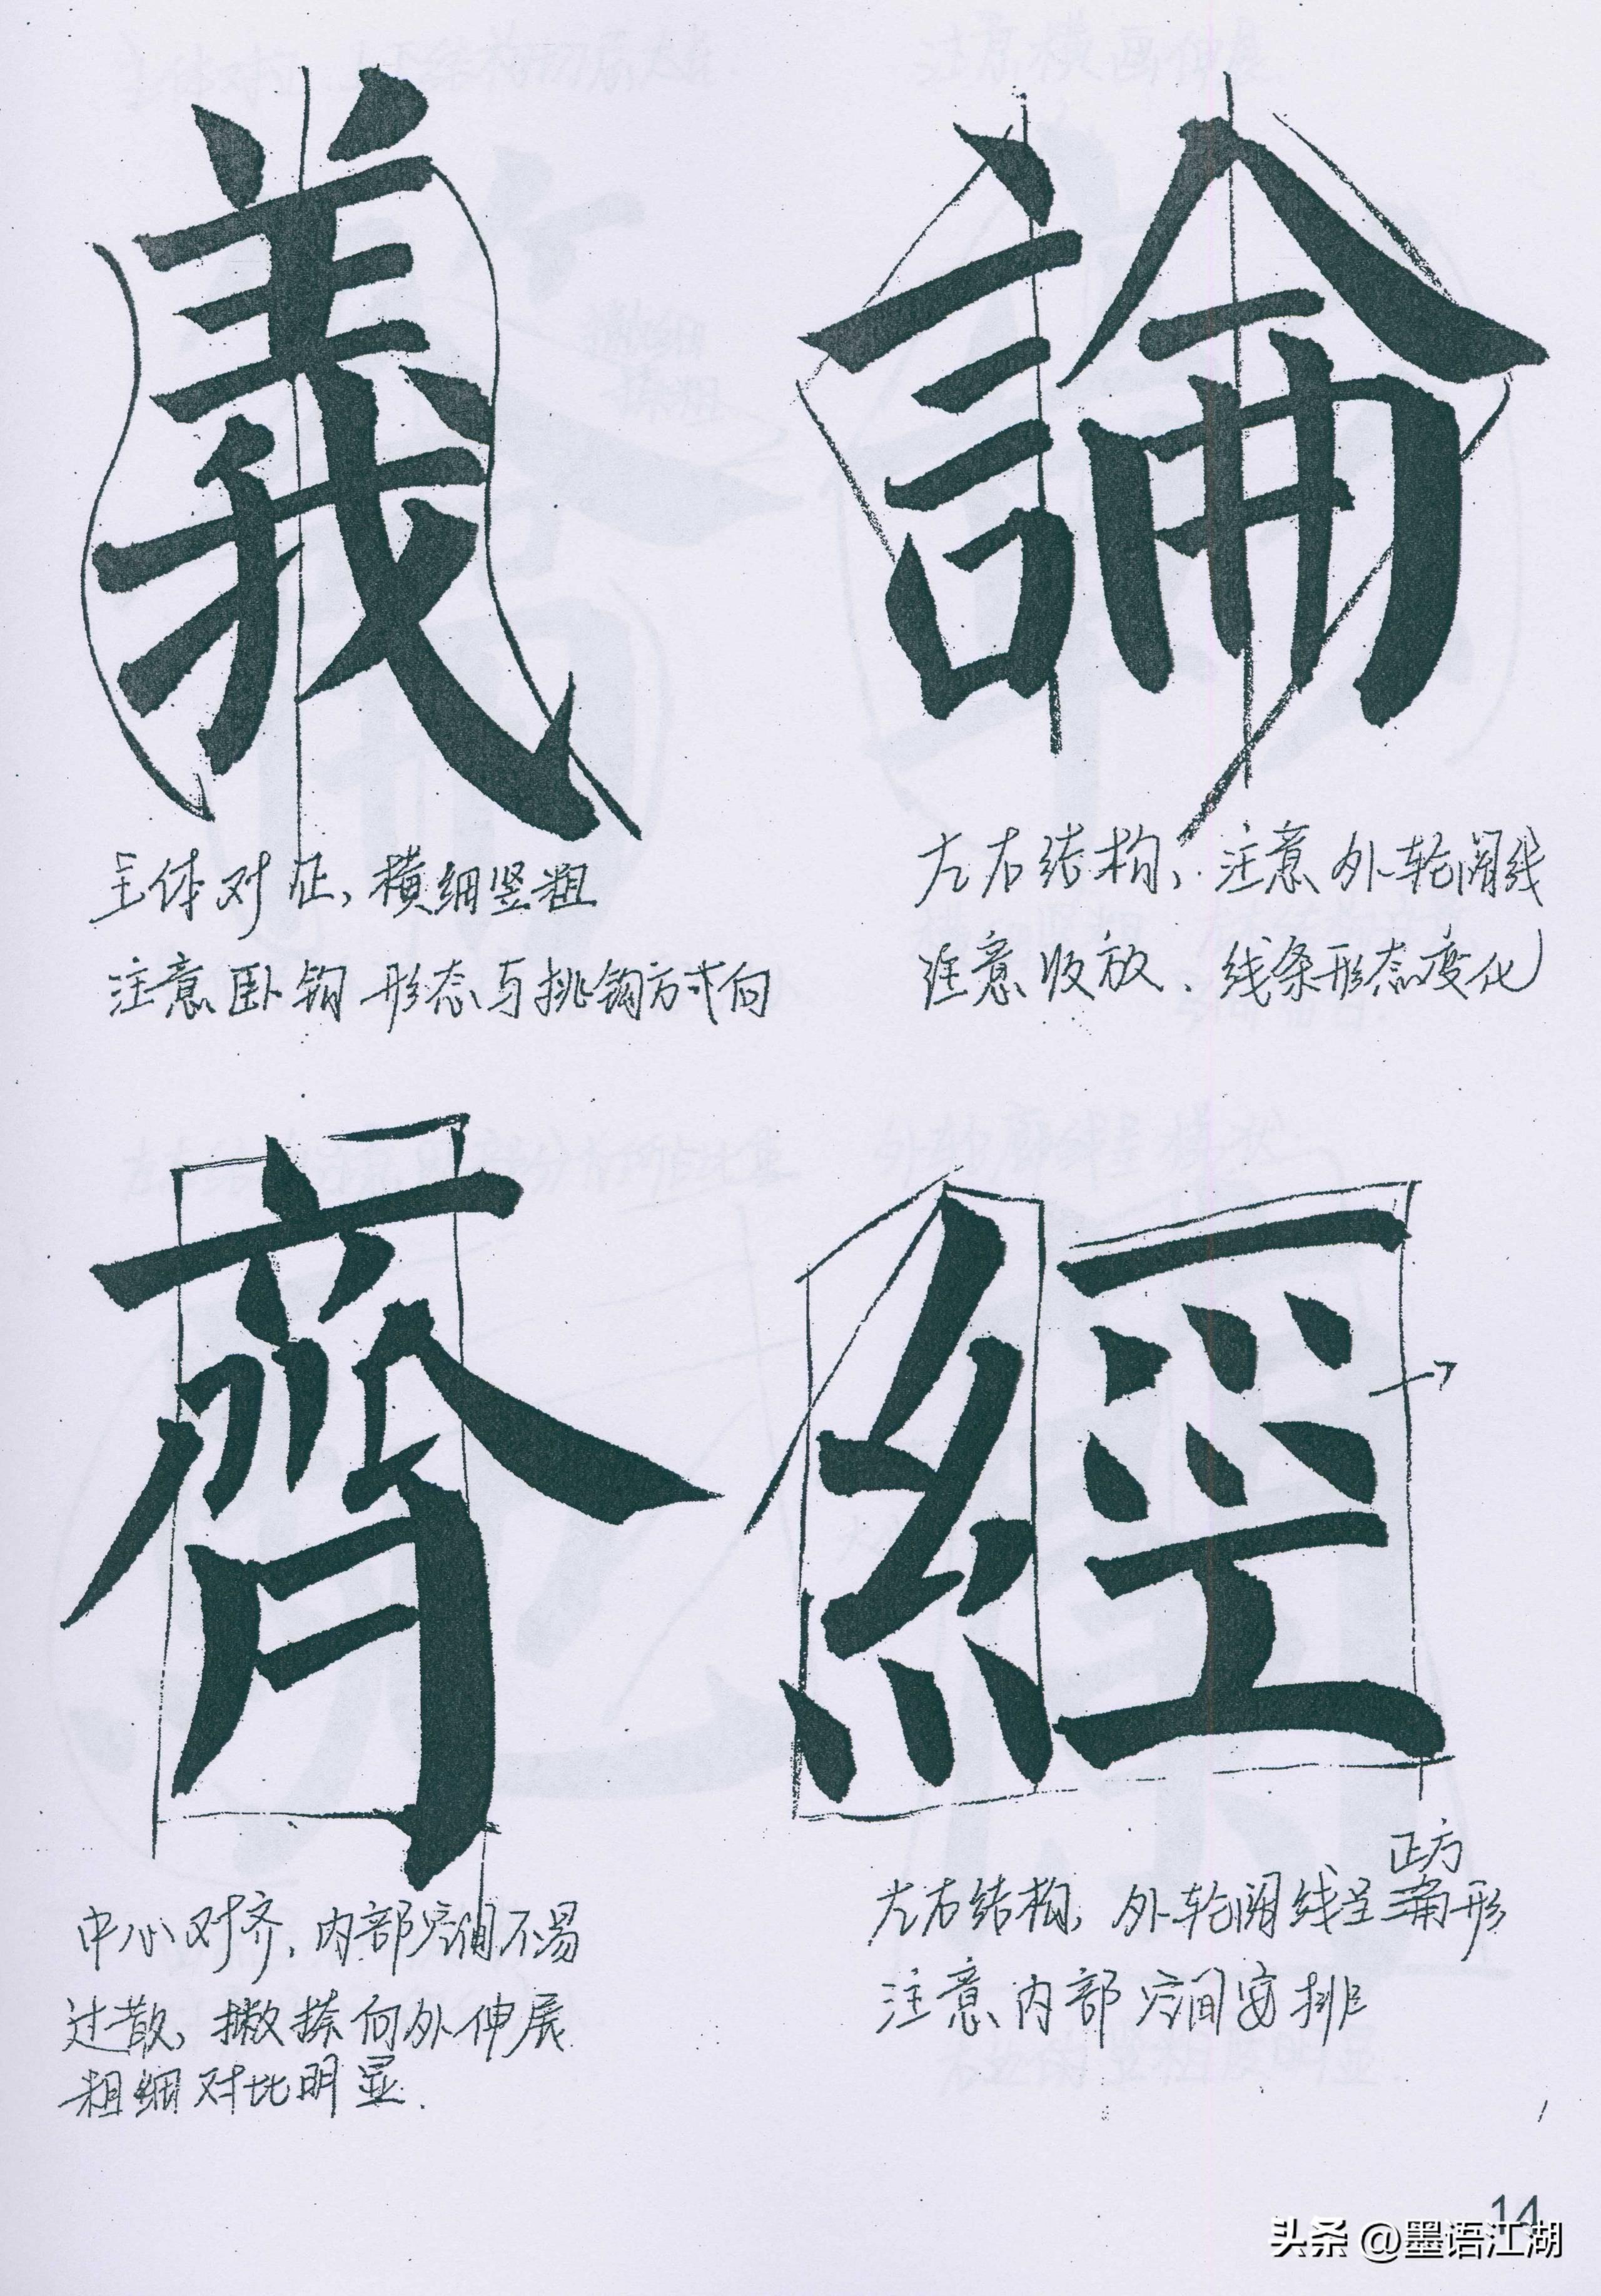 義
論
主体对正，横细竖粗
注意卧钩形态与挑钩方向
左右结构，注意外轮阔线
注意收放、线条形态变化
齊
經
中心对齐，内部空间不易
过散，撇捺向外伸展
粗细对比明显.
正方
左右结构，外轮阔线呈形
注意内部空间安排
14
头条 @墨语江湖